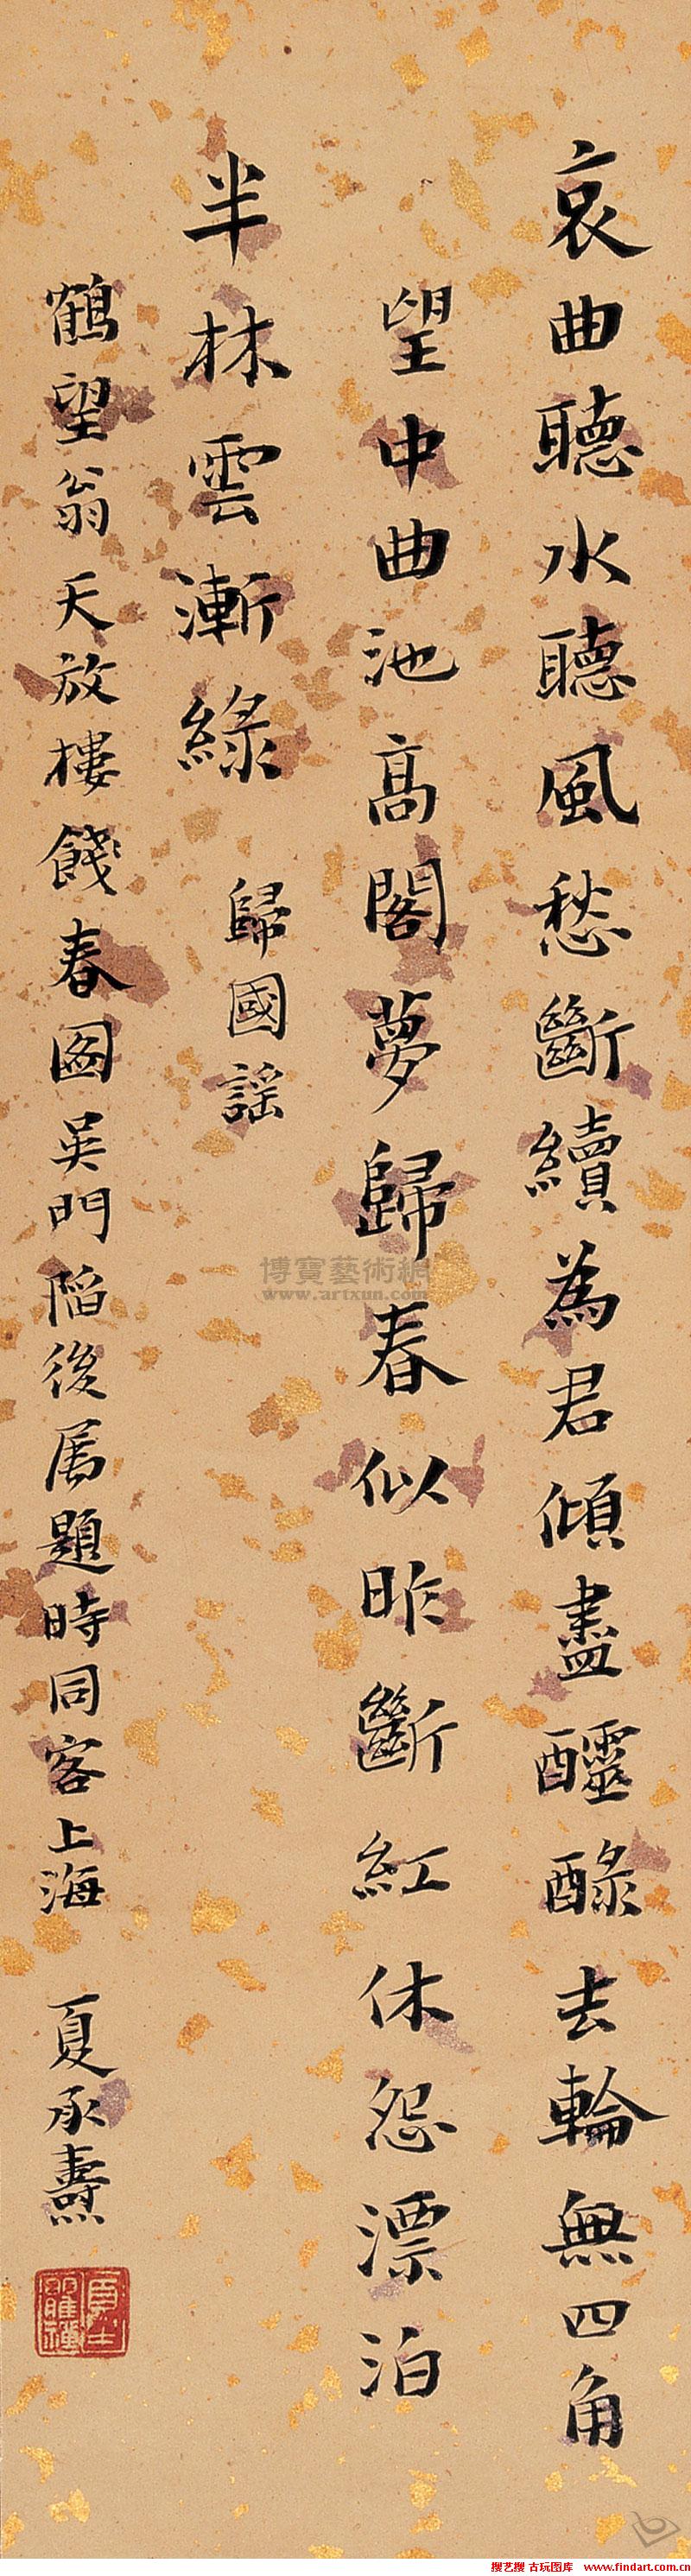 哀曲聽水聽風愁斷續為君傾盡醽醁去輪無四角
望中曲池高閣夢歸春似昨斷紅休怨漂泊
半林雲漸綠 歸國謠
鶴望翁天放樓餞春圖吳門陷後屬題時同客上海 夏承燾
博寶藝術網
www.artxun.com
搜艺搜 古玩图库 www.findart.com.cn